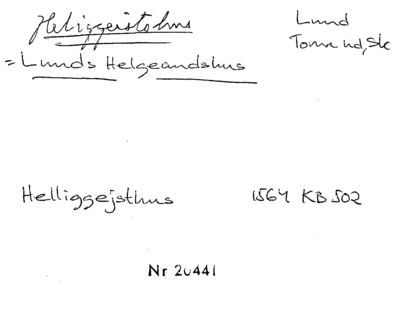 Heliggeistehus
Lund
Torna hd, Sk
= Lunds Helgeandshus
Helliggejsthus 1564 KB 502
Nr 20441